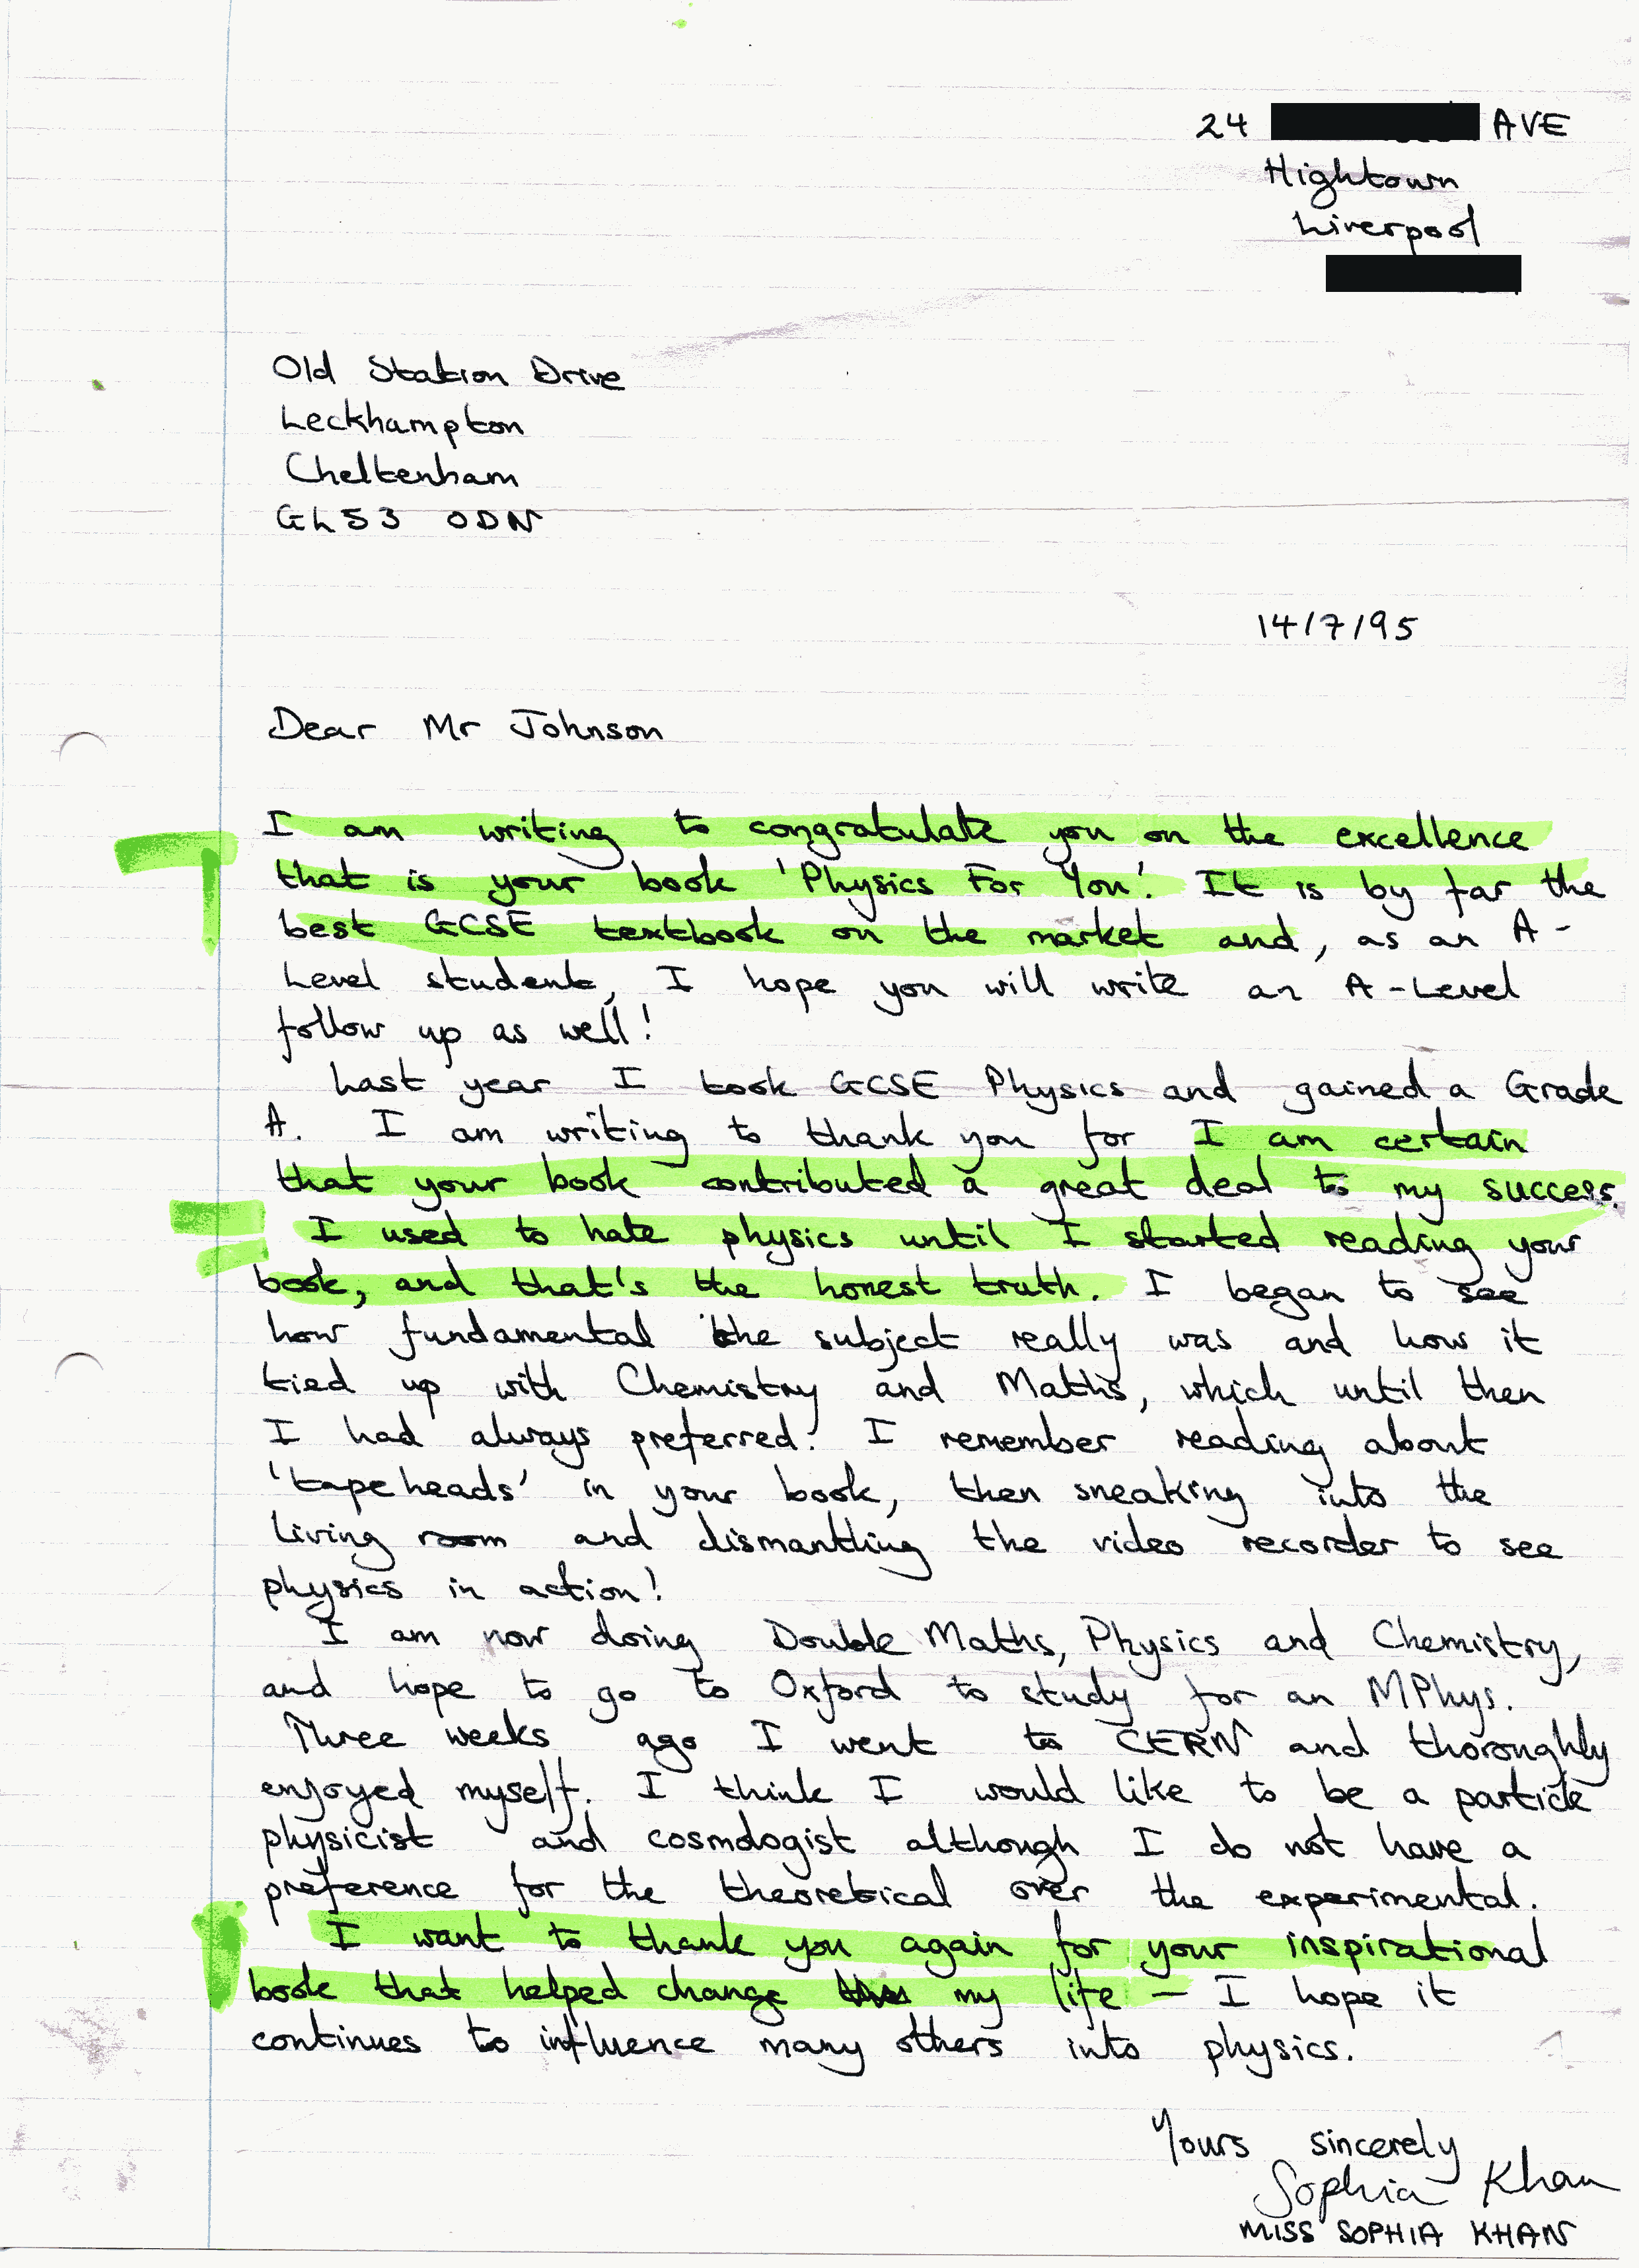 24 AVE
Hightown
Liverpool
Old Station Drive
Leckhampton
Cheltenham
GL53 0DN
14/7/95
Dear Mr Johnson
I am writing to congratulate you on the excellence
that is your book 'Physics For You'. It is by far the
best GCSE textbook on the market and, as an A-
Level student, I hope you will write an A-Level
follow up as well!
Last year I took GCSE Physics and gained a Grade
A. I am writing to thank you for I am certain
that your book contributed a great deal to my success.
I used to hate physics until I started reading your
book, and that's the honest truth. I began to see
how fundamental the subject really was and how it
tied up with Chemistry and Maths, which until then
I had always preferred. I remember reading about
'tapeheads' in your book, then sneaking into the
living room and dismanthing the video recorder to see
physics in action!
I am now doing Double Maths, Physics and Chemistry,
and hope to go to Oxford to study for an MPhys.
Three weeks ago I went to CERN and thoroughly
enjoyed myself. I think I would like to be a particle
physicist and cosmologist although I do not have a
preference for the theoretical over the experimental.
I want to thank you again for your inspirational
book that helped change my life – I hope it
continues to influence many others into physics.
Yours sincerely
Sophia Khan
MISS SOPHIA KHAN